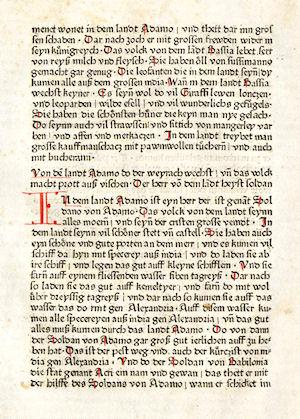 menet wonet in dem landt Adamo ; vnd theit dar inn gros
sen schaden · Dar nach zoch er mit grossen frewden wider in
seyn künigreych · Das volck von dem landt Bassia lebet sert
von reyß milch vnd fleysch · Sie haben öll von sussimanno
gemacht gar genug · Die leofanten die in dem landt seyndt
kumen alle auß dem grossen india · Wan in dem landt Bassia
wechst keyner · Es seyn wol do vil Giraffi lewen lonczen
vnd leoparden ; wilde esell ; vnd vil wunderlichs geflügels ·
Sie haben die schönsten hüner die keyn man nye gesach ·
Do seynn auch vil strawssen ; vnd sittich von mangerley var
ben ; vnd affen vnd merkaczen · In dem landt treybet man
grosse kauffmanschacz mit pawmwollen tüchern ; vnd auch
mit bucheram ·
Von dem landt Adamo do der weyrach wechst ; vnd das volck
macht prott auß vischen · Der herr von dem landt heyst soldan
In dem landt Adamo ist eyn herr der ist genant Sol
dano von Adamo · Das volck von dem landt seynn
alles moern ; vnd seyn der ersten grosse veindt · In
dem landt seynn vil schöner stett vnd castell · Sie haben auch
eyn schöne vnd gute porten an dem mer ; vnd es kumen vil
schiff da hyn mit specerey auß india ; vnd do laden sie ab
ire schiff ; vnd legen das gut auff kleyne schifflen · Vnd sie
farn auff eynem fliessenden wasser siben tagreyß · Dar nach
so laden sie das gut auff kemeltyer ; vnd farn do mit wol
über dreyssig tagreyß ; vnd dar nach so kumen sie auff das
wasser das do rint gen Alexandria · Auff disem wasser ku
men alle specereyen auß india gen Alexandria ; vnd das gut
alles muß kumen durch das landt Adamo · Do von dann
der Soldan von Adamo gar groß gut ierlichen auff zu he
ben hat · Das ist der pest weg vnd auch der kürczist von in
dia gen Alexandria · Vnd do der Soldan von Babilonia
die stat genant Acri ein nam vnd gewan ; das thet er mit
der hilffe des Soldans von Adamo ; wann er schicket im